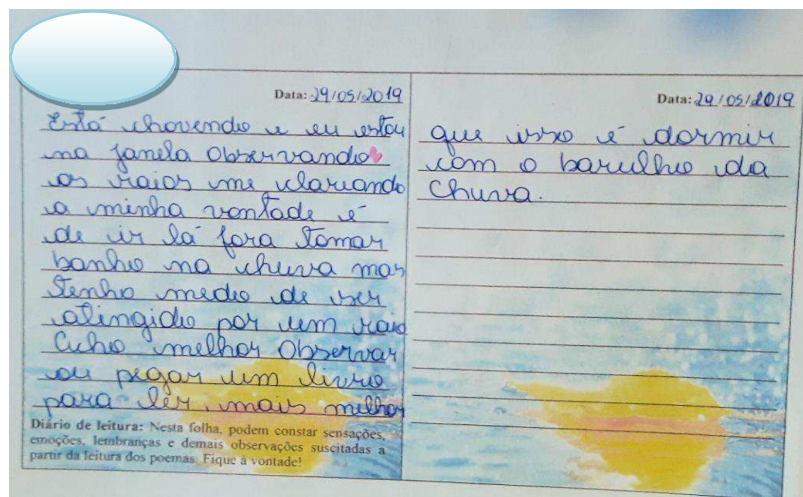 Data: 29/05/2019
Está chovendo e eu estou
na janela observando
os raios me clareando
a minha vontade é
de ir lá fora tomar
banho na chuva mas
tenho medo de ser
atingido por um raio
Cuho melhor Observar
ou pegar um livro
para lêr, mais melhor
Diário de leitura: Nesta folha, podem constar sensações,
emoções, lembranças e demais observações suscitadas a
partir da leitura dos poemas. Fique à vontade!
Data: 29/05/2019
que isso é dormir
com o barulho da
Chuva.